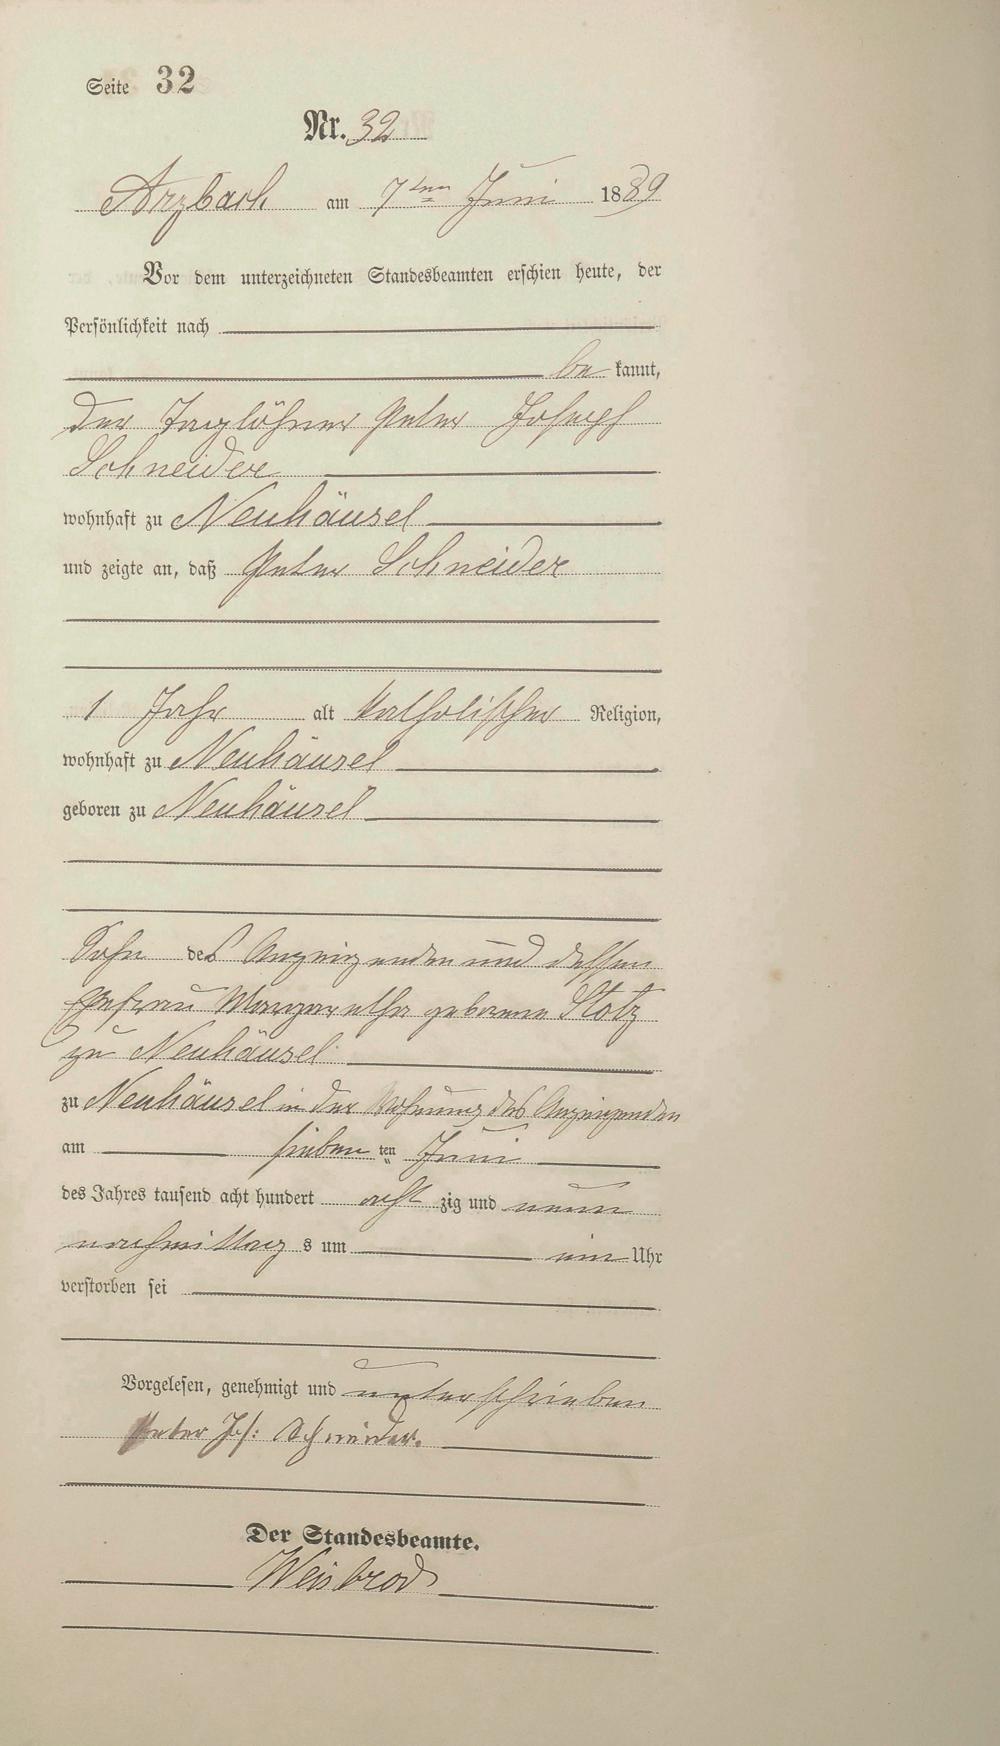 Seite 32
Nr. 32
Arzbach am 7ten Juni 1889
Vor dem unterzeichneten Standesbeamten erschien heute, der
Persönlichkeit nach
be kannt,
der Taglöhner Peter Joseph
Schneider
wohnhaft zu Neuhäusel
und zeigte an, daß Peter Schneider
1 Jahr alt katholischer Religion,
wohnhaft zu Neuhäusel
geboren zu Neuhäusel
Sohn des Anzeigenden und dessen
Ehefrau Margaretha geborene Stotz
zu Neuhäusel
zu Neuhäusel in der Wohnung des Anzeigenden
am sieben ten Juni
des Jahres tausend acht hundert acht zig und neun
nachmittag s um ein Uhr
verstorben sei
Vorgelesen, genehmigt und unterschrieben
Peter Js: Schneider.
Der Standesbeamte.
Weisbrod